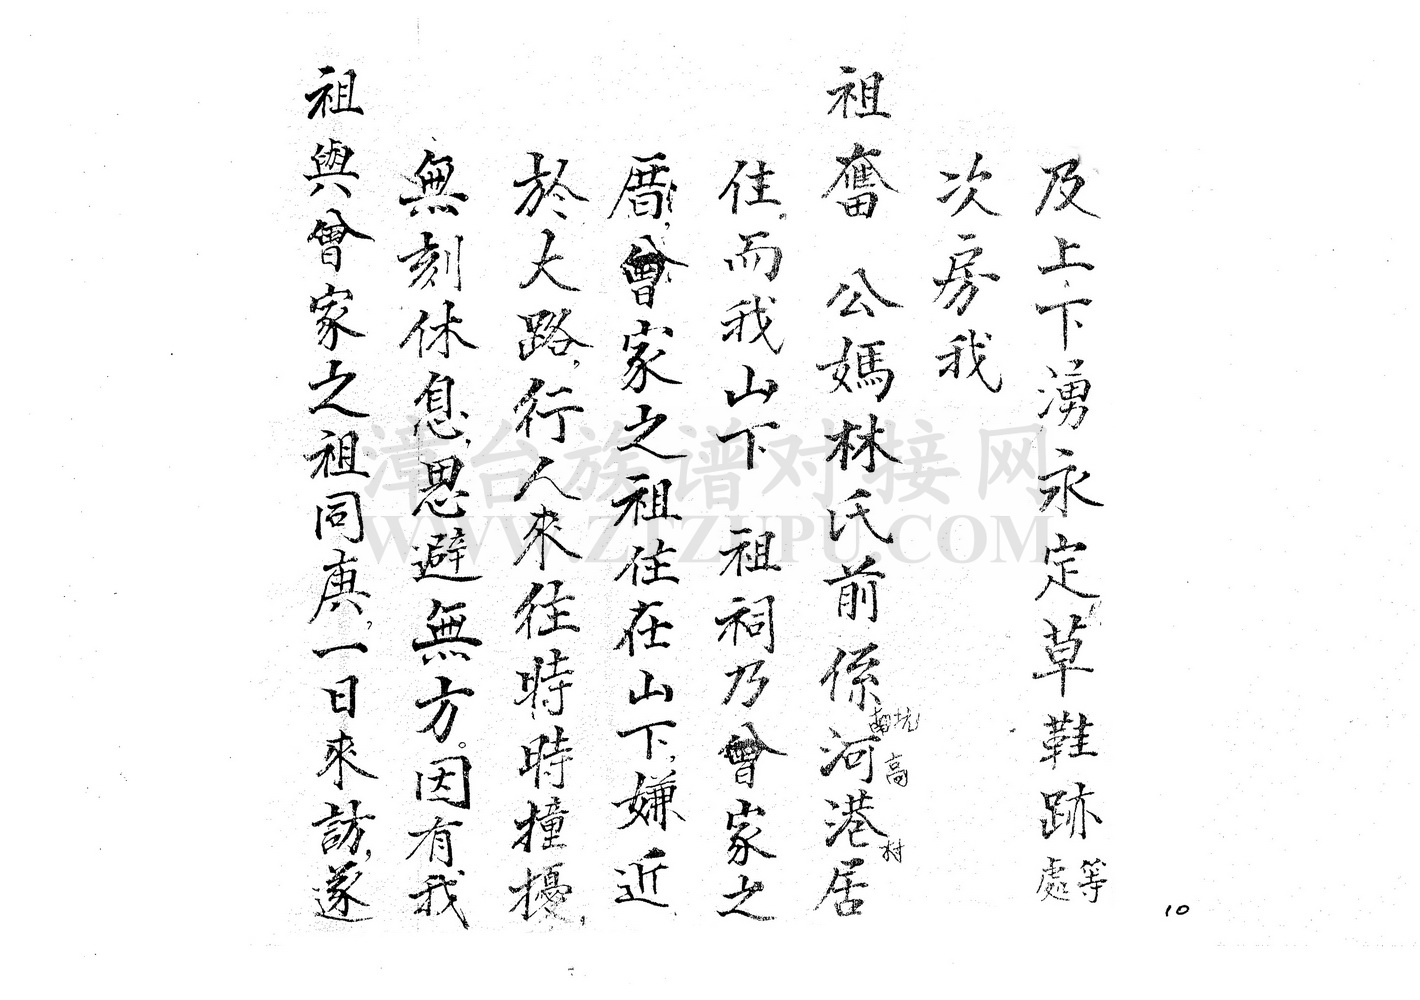 及上下湧永定草鞋跡等處
次房我
祖奮 公媽林氏前係河港居
南坑
高
村
住,而我山下 祖祠乃曾家之
厝,曾家之祖住在山下,嫌近
於大路,行人來往時時撞擾,
無刻休息,思避無方。因有我
祖與曾家之祖同庚,一日來訪,遂
10
漳台族谱对接网
WWW.ZTZUPU.COM